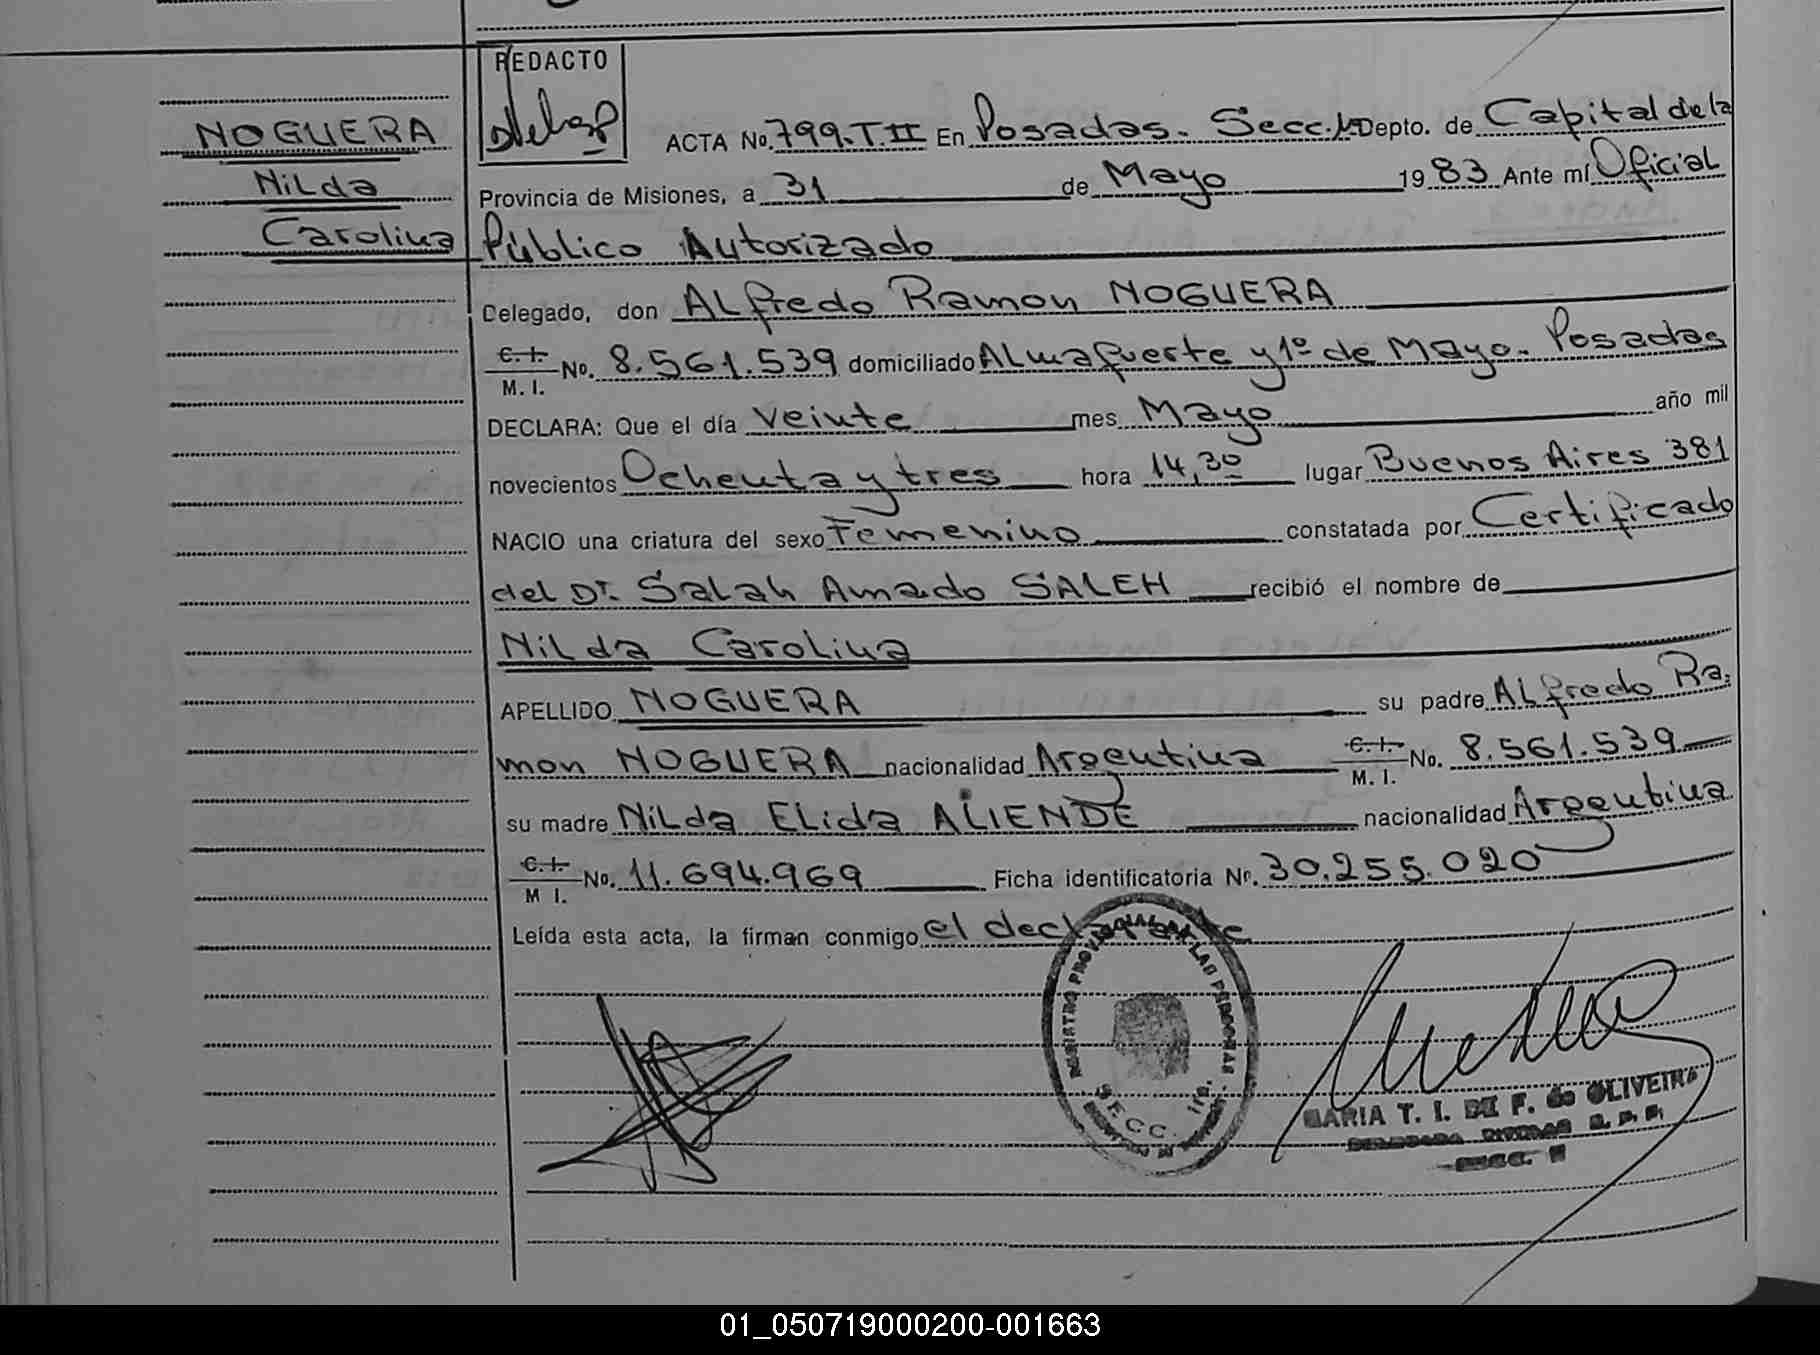 REDACTO
NOGUERA
Nilda
Carolina
ACTA No. 799.T.II En Posadas. Secc. Depto. de Capital de la
Provincia de Misiones, a 31 de Mayo 1983 Ante mí Oficial
Público Autorizado
Delegado, don ALfredo Ramon NOGUERA
C. I. M. I. No. 8.561.539 domiciliado ALmafuerte y 1º de Mayo. Posadas
DECLARA: Que el día Veinte mes Mayo año mil
novecientos Ochenta y tres hora 14,30 lugar Buenos Aires 381
NACIO una criatura del sexo Femenino constatada por Certificado
del Dr. Salah Amado SALEH recibió el nombre de
NiLda CaroLina
APELLIDO NOGUERA su padre ALfredo Ra-
mon NOGUERA nacionalidad Argentina C. I. M. I. No. 8.561.539
su madre NiLda ELida ALIENDE nacionalidad Argentina
C. I. M I. No. 11.694.969 Ficha identificatoria Nº. 30.255.020
Leída esta acta, la firman conmigo el declarante
REGISTRO PROVINCIAL DE LAS PERSONAS
SECC.
MARIA T. I. F. de OLIVEIRA
01_050719000200-001663